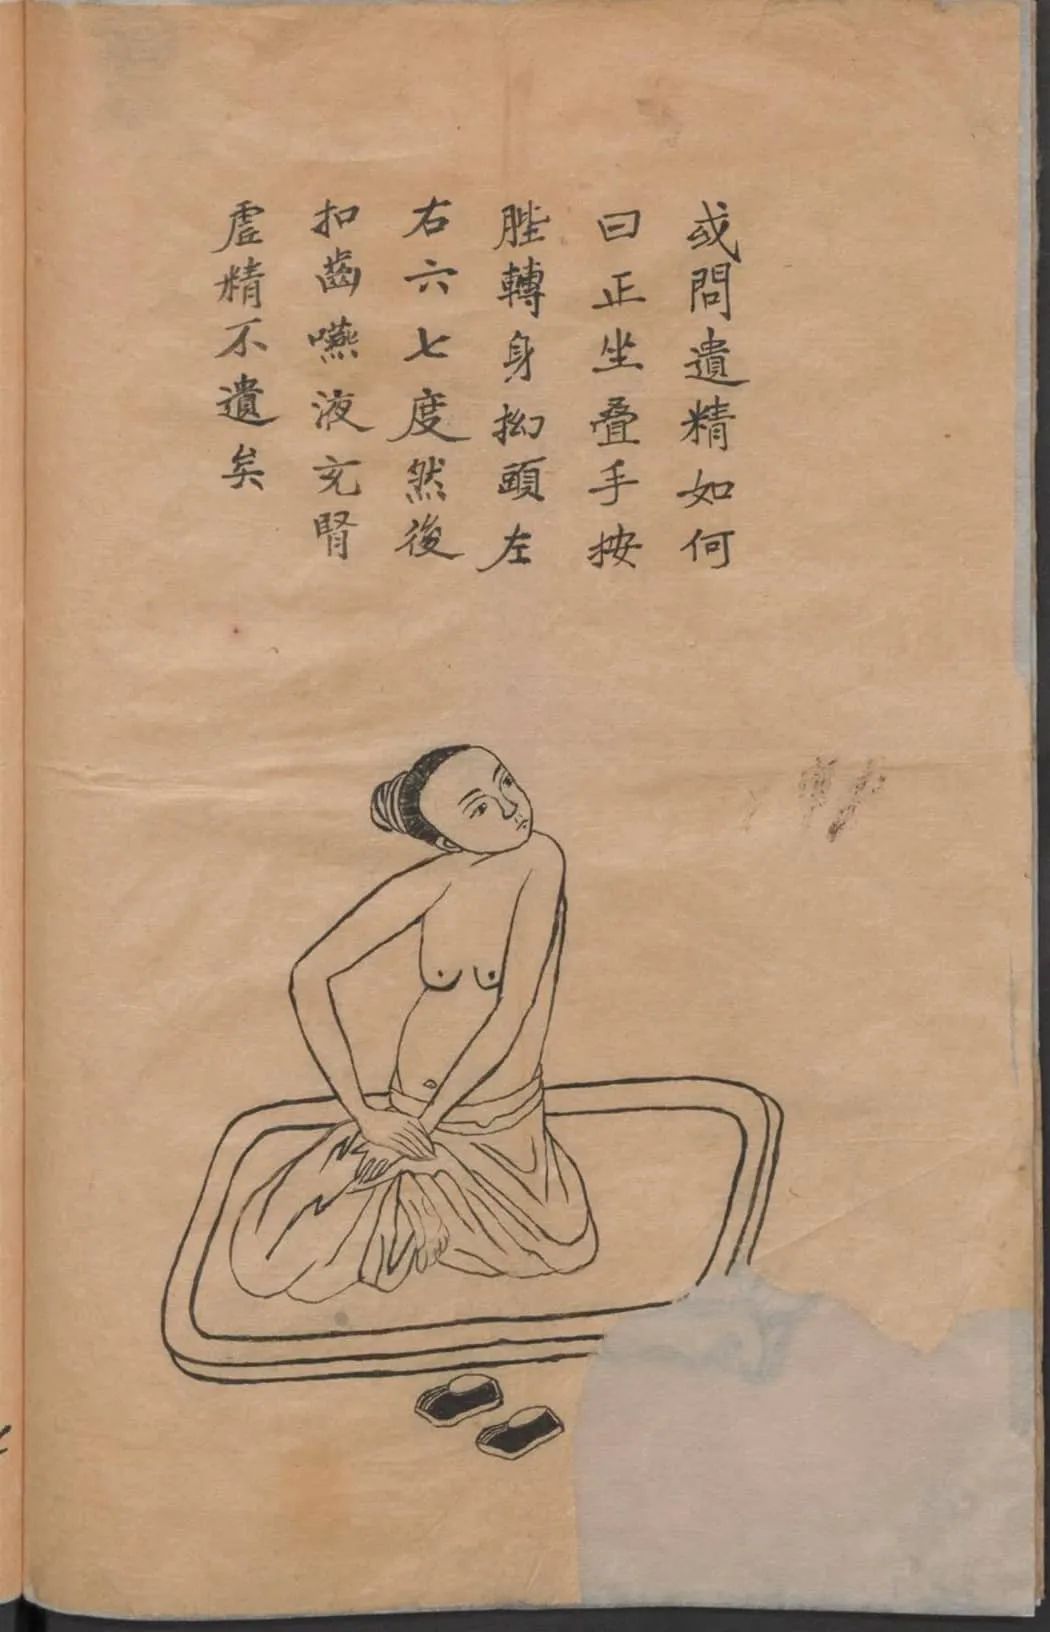 或問遺精如何
曰正坐叠手按
䏶轉身拗頭左
右六七度然後
扣齒嚥液充腎
虛精不遺矣